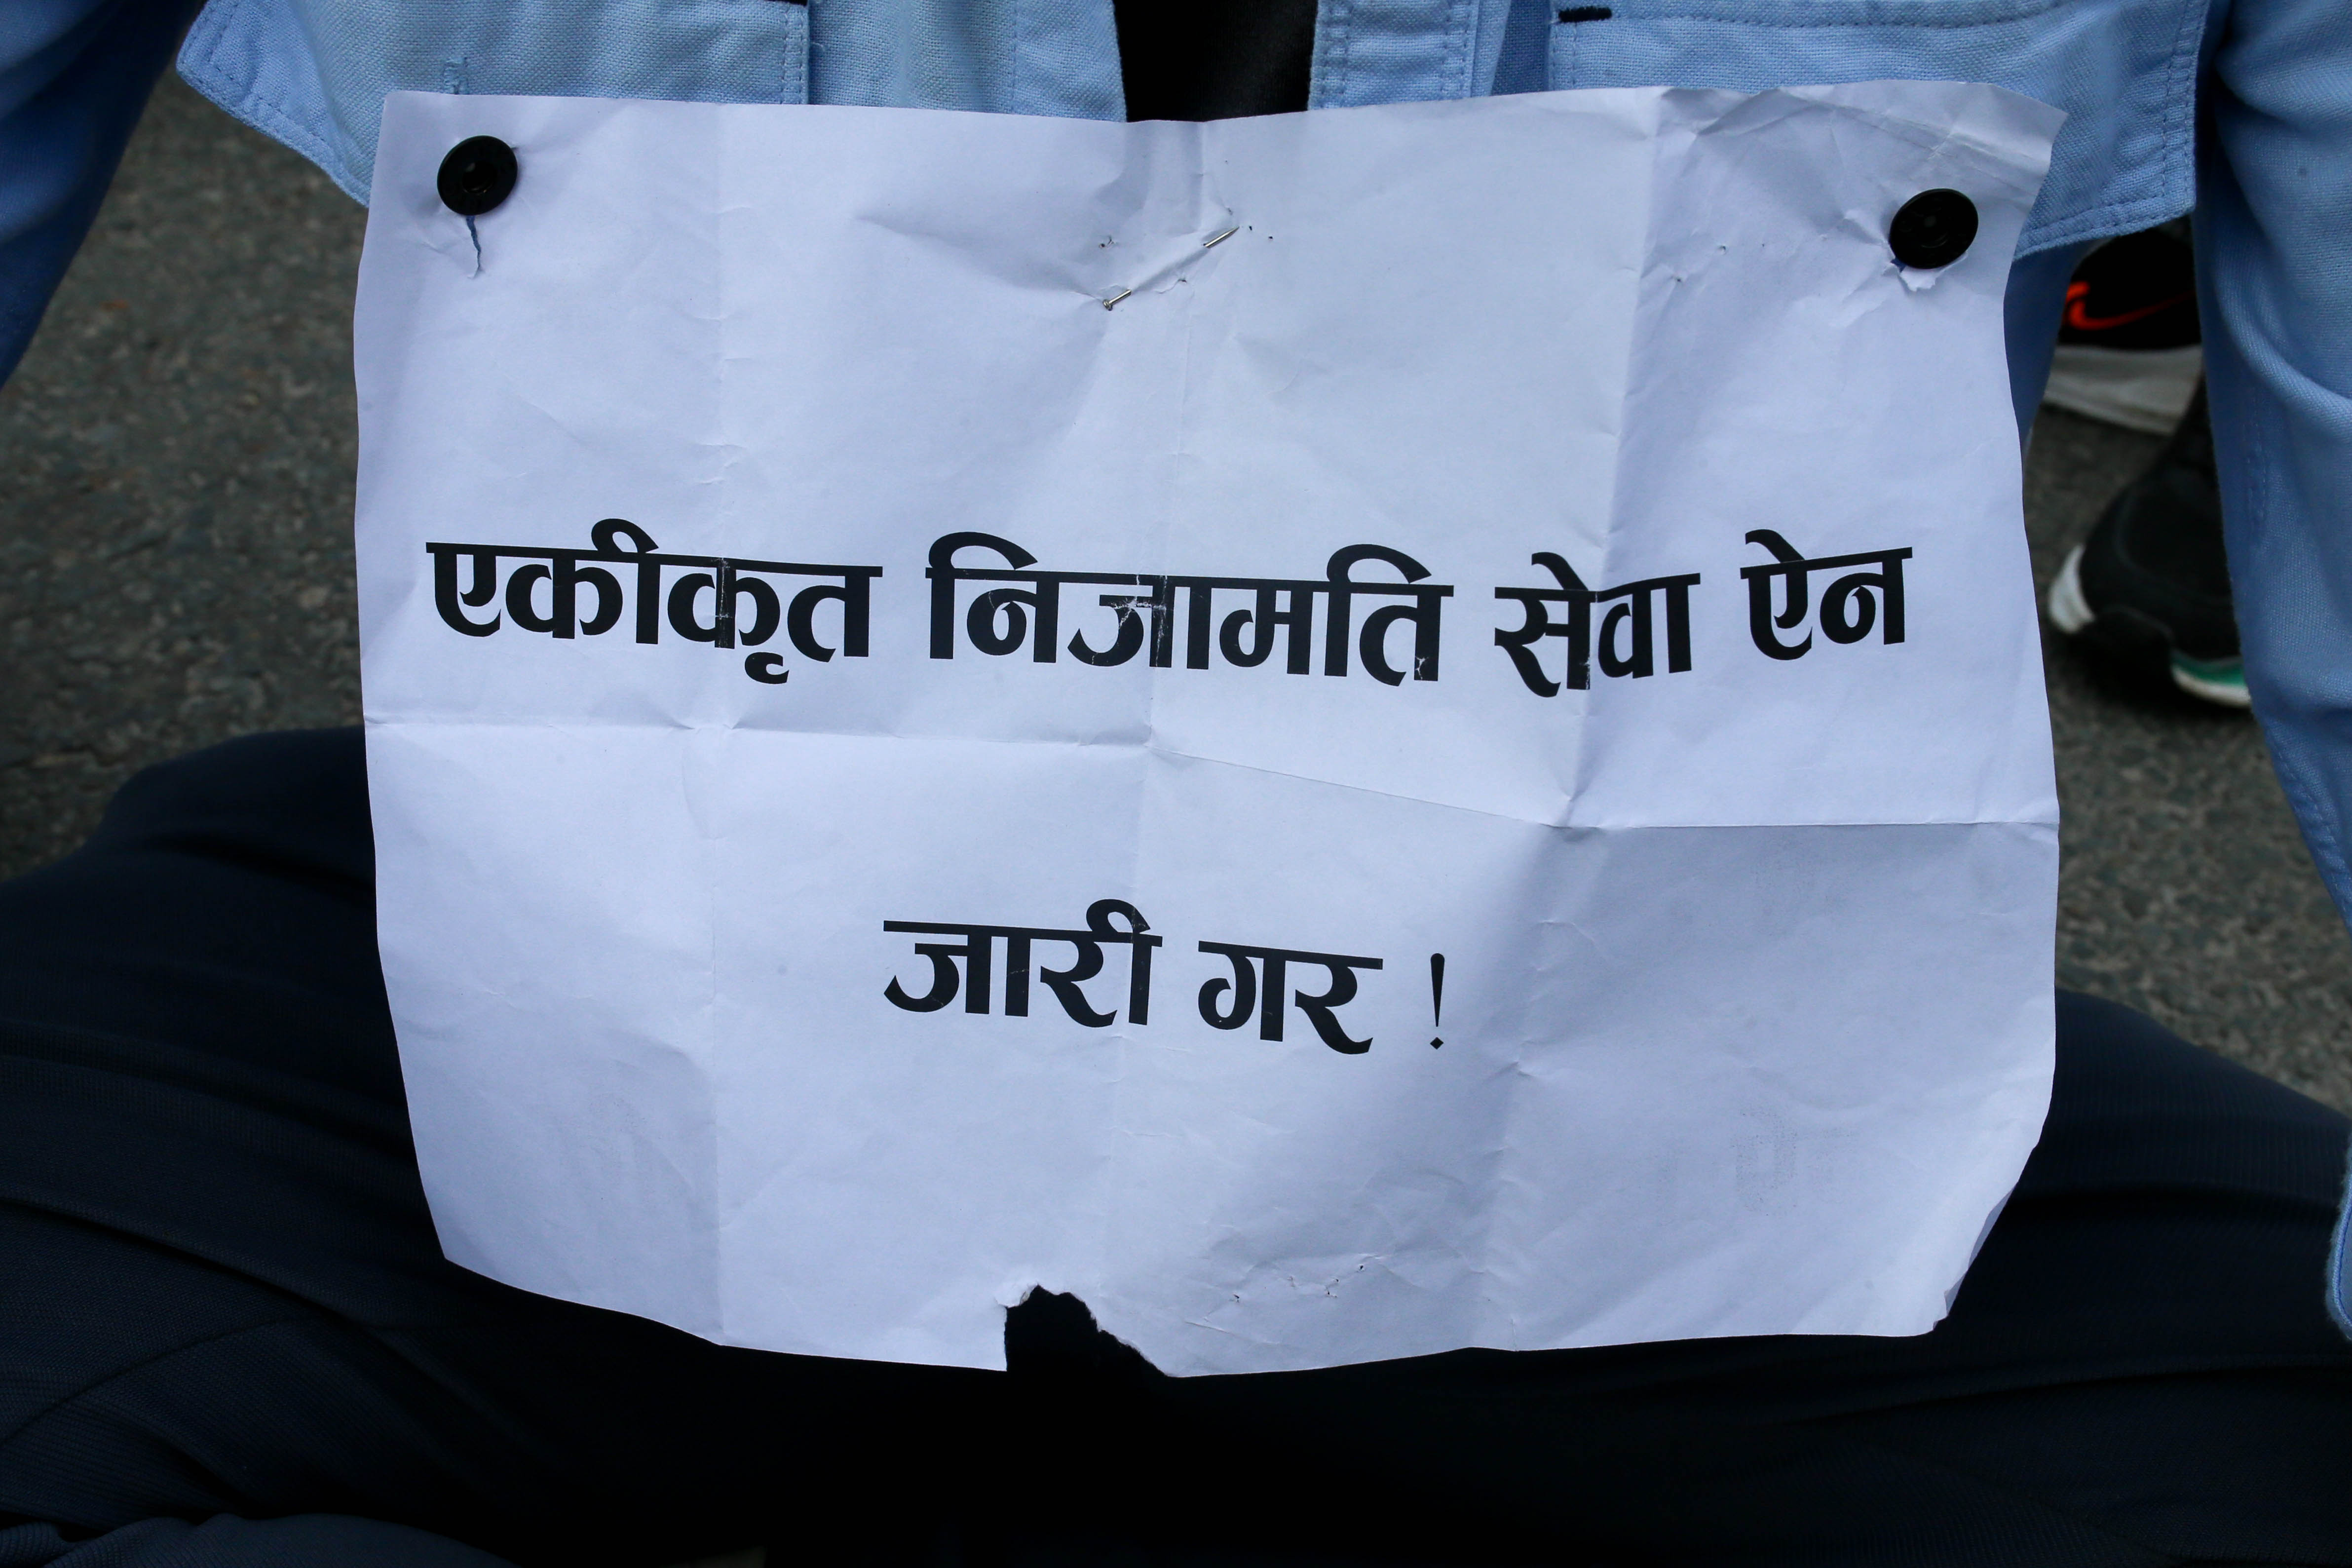 एकीकृत निजामति सेवा ऐन
जारी गर !